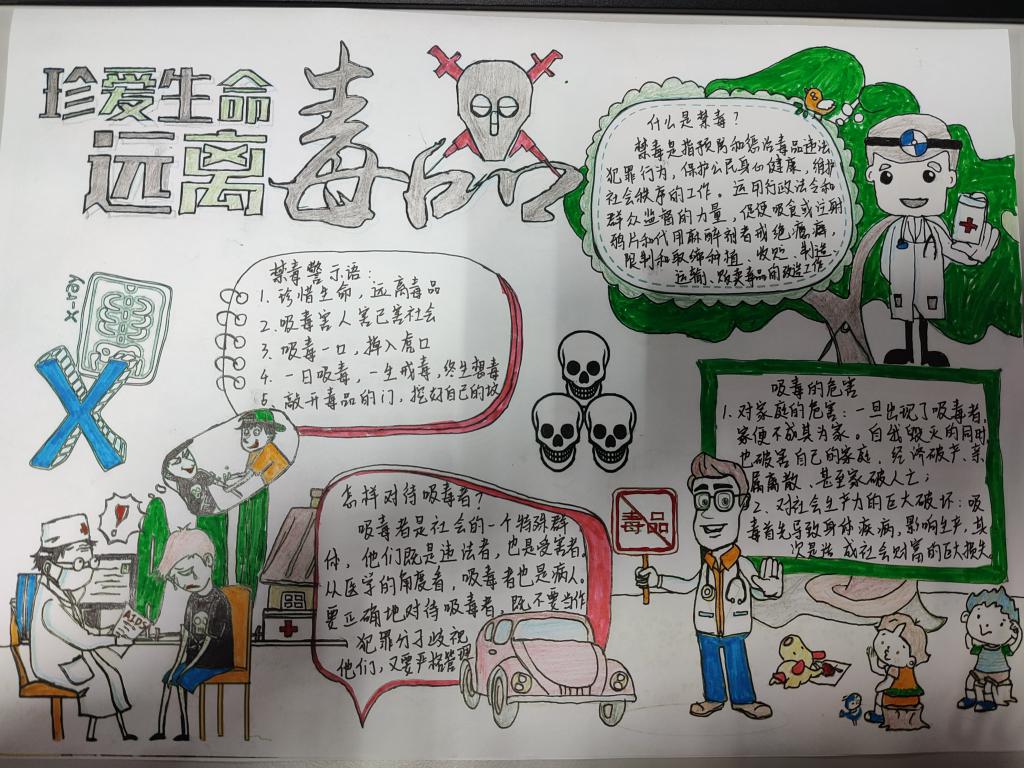 珍爱生命
远离毒品
什么是禁毒？
禁毒是指预防和惩治毒品违法
犯罪行为，保护公民身心健康，维护
社会秩序的工作。运用行政法令和
群众监督的力量，促使吸食或注射
鸦片和代用麻醉剂者戒绝瘾病，
限制和取缔种植、收贮、制造
运输、贩卖毒品的改造工作
X-ray
禁毒警示语：
1. 珍惜生命，远离毒品
2. 吸毒害人害己害社会
3. 吸毒一口，掉入虎口
4. 一日吸毒，一生戒毒，终生想毒
5. 敲开毒品的门，挖好自己的坟
吸毒的危害
1. 对家庭的危害：一旦出现了吸毒者，
家便不成其为家。自我毁灭的同时
也破害自己的家庭，经济破产、亲
属离散、甚至家破人亡；
2. 对社会生产力的巨大破坏：吸
毒首先导致身体疾病，影响生产，其
次是造成社会财富的巨大损失
怎样对待吸毒者？
吸毒者是社会的一个特殊群
体，他们既是违法者，也是受害者，
从医学的角度看，吸毒者也是病人。
要正确地对待吸毒者，既不要当作
犯罪分子歧视
他们，又要严格管理
毒品
AIDS